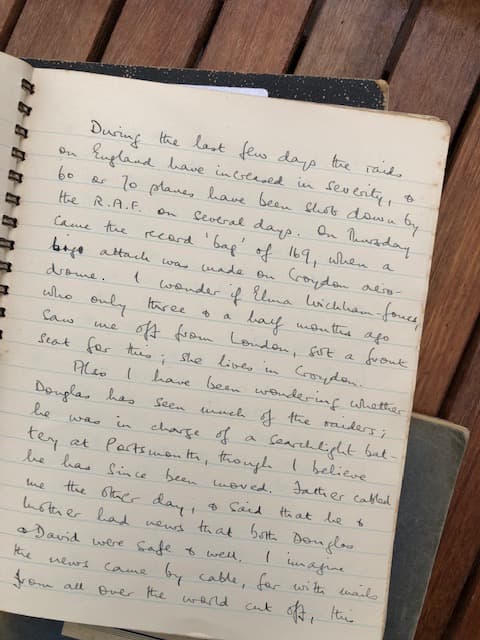 During the last few days the raids
on England have increased in severity, &
60 or 70 planes have been shot down by
the R.A.F. on several days. On Thursday
came the record 'bag' of 169, when a
attack was made on Croydon aero-
drome. I wonder if Elma Wickham-Jones,
who only three & a half months ago
saw me off from London, got a front
seat for this; she lives in Croydon.
Also I have been wondering whether
Douglas has seen much of the raiders;
he was in charge of a searchlight bat-
tery at Portsmouth, though I believe
he has since been moved. Father cabled
me the other day, & said that he &
Mother had news that both Douglas
& David were safe & well. I imagine
the news came by cable, for with mails
from all over the world cut off, this